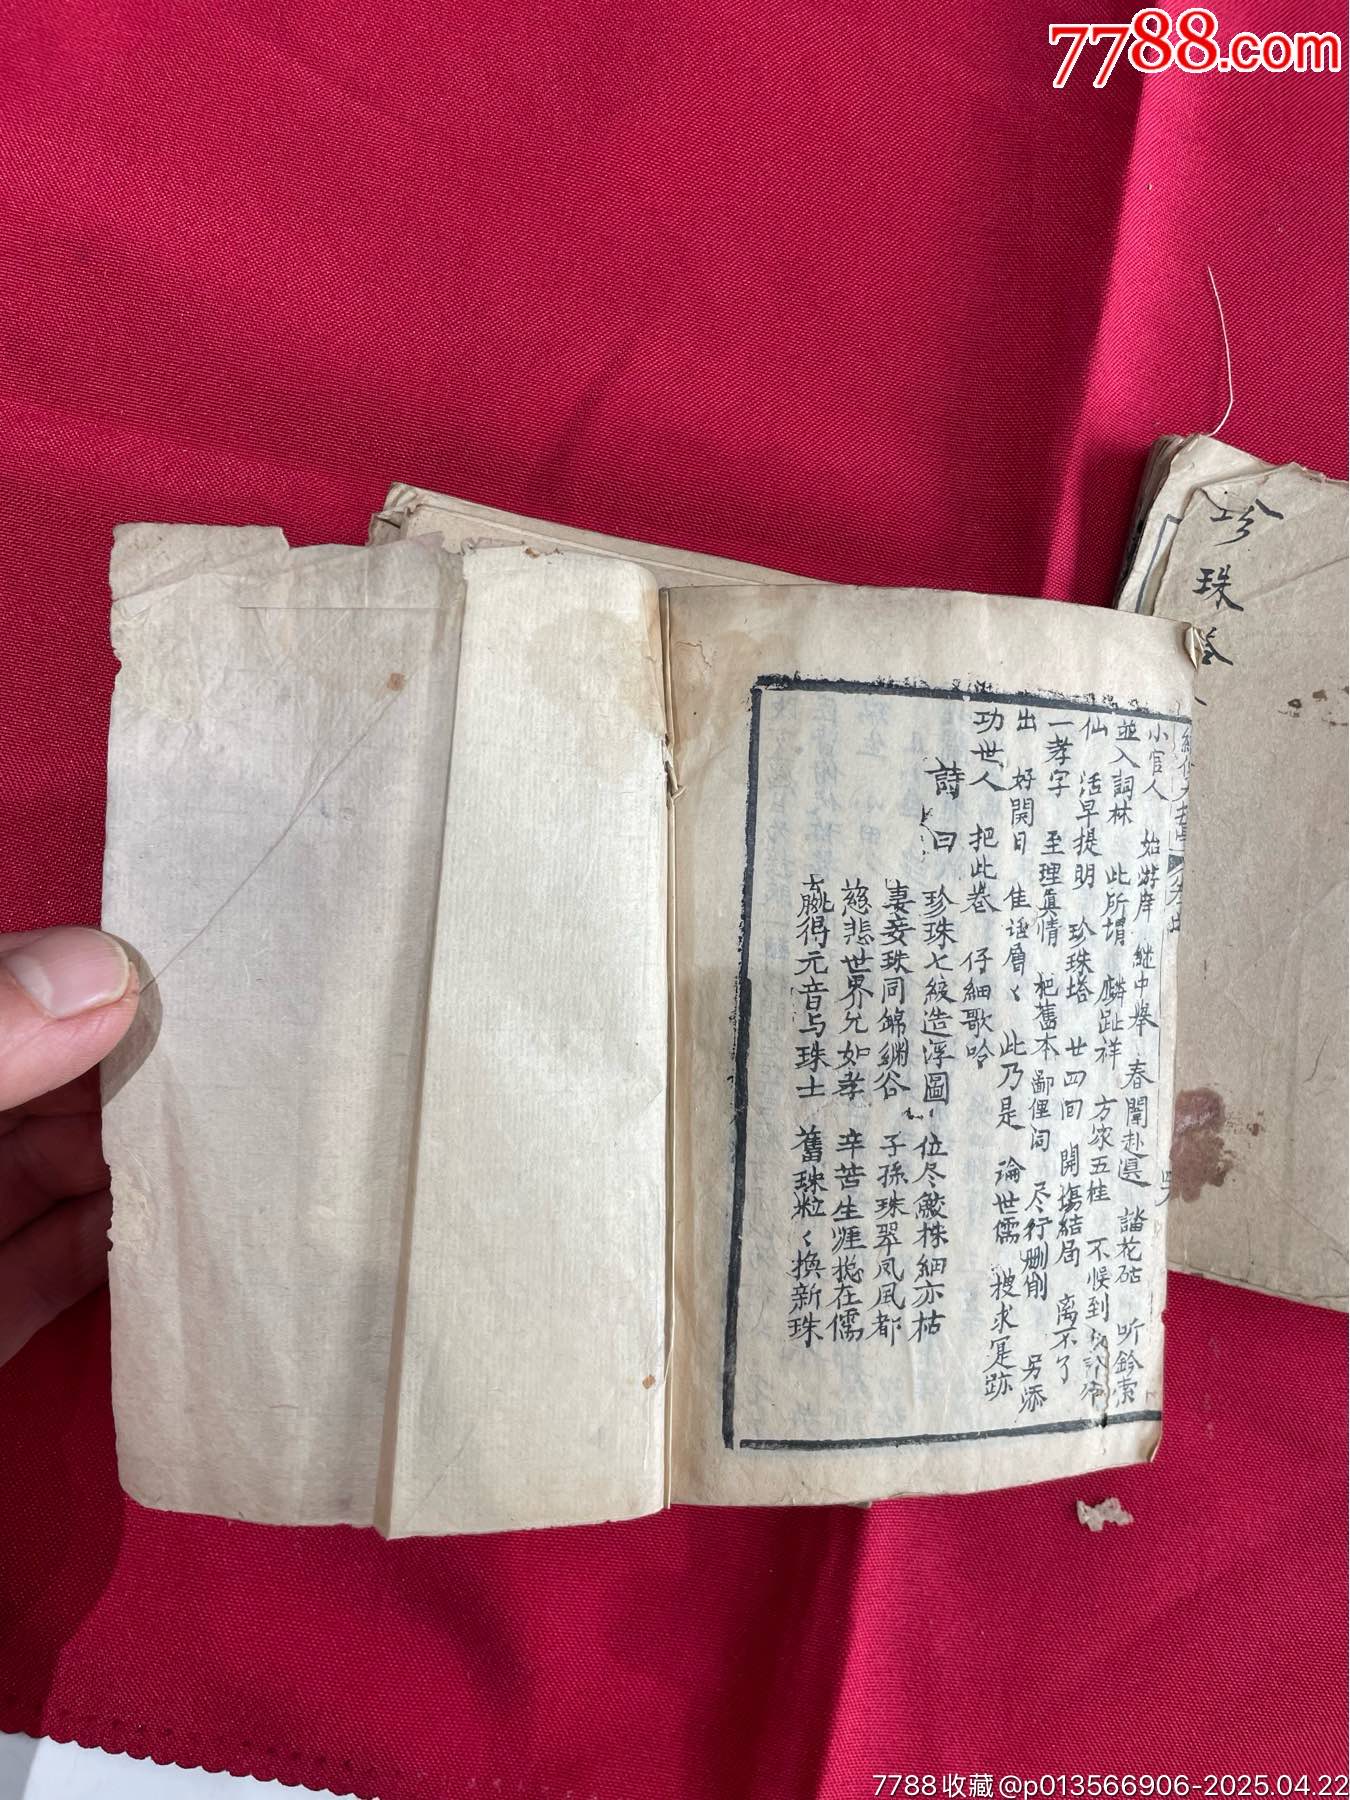 7788.com
珍珠塔
小官人 始游庠 继中举 春闈赴選 譜花砧 听鈴索
並入詞林 此所謂 麟趾祥 方家五桂 不候到
仙 活早提明 珍珠塔 廿四囬 開塲結局 离不了
一孝字 至理真情 杷舊本 鄙俚词 尽行删削 另添
出 好開目 佳谣層〻 此乃是 論世儒 搜求寔跡
功世人 把此卷 仔細歌吟
詩曰
珍珠七級造浮圖 位尽鮫株細亦枯
妻妾珠同錦綉谷 子孫珠翠凤凨都
慈悲世界允如孝 辛苦生涯揔在儒
赢得元音与珠士 舊珠粒〻換新珠
7788收藏@p013566906-2025.04.22